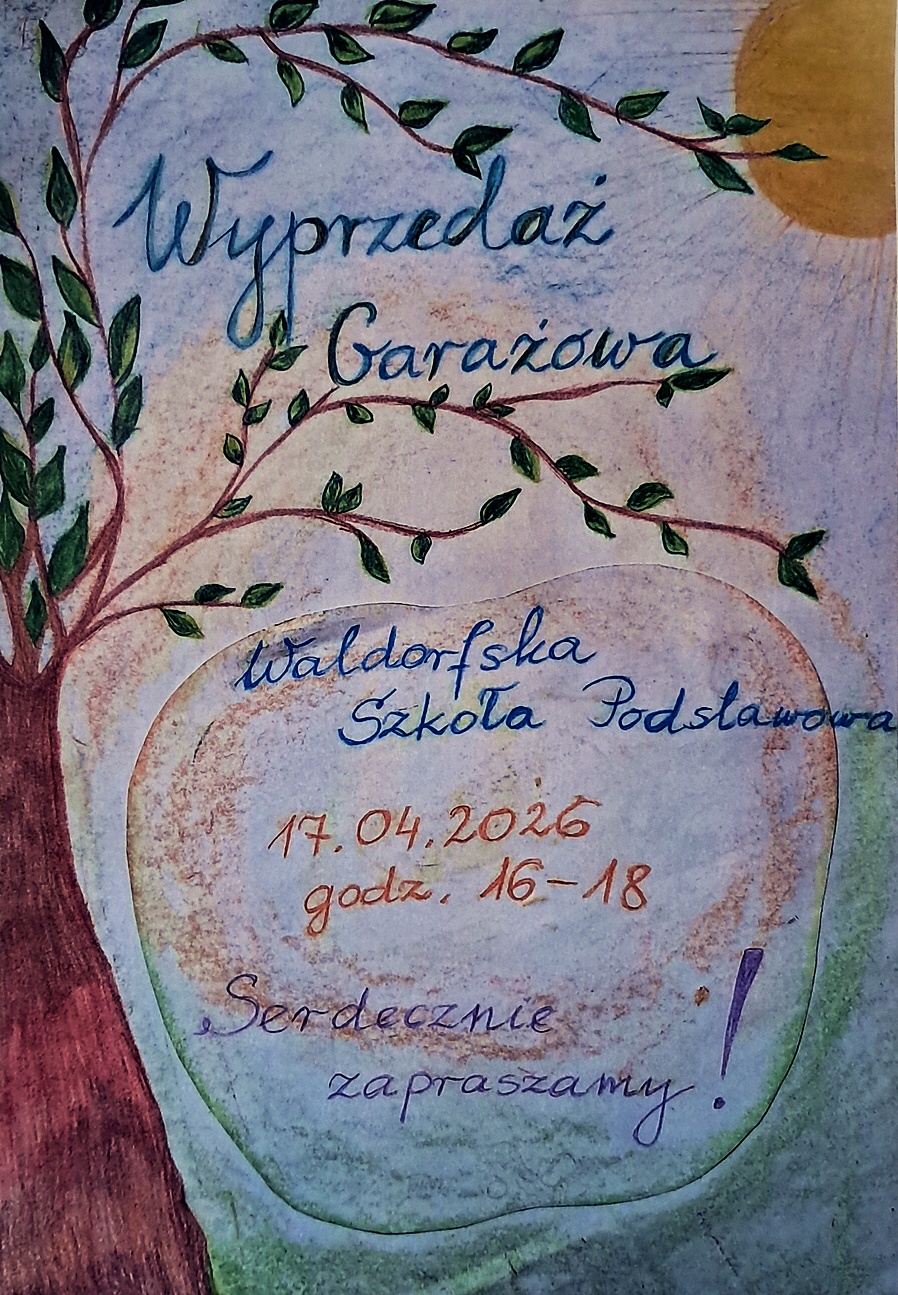 Wyprzedaż
Garażowa
Waldorfska
Szkoła Podstawowa
17.04.2026
godz. 16-18
Serdecznie
zapraszamy!